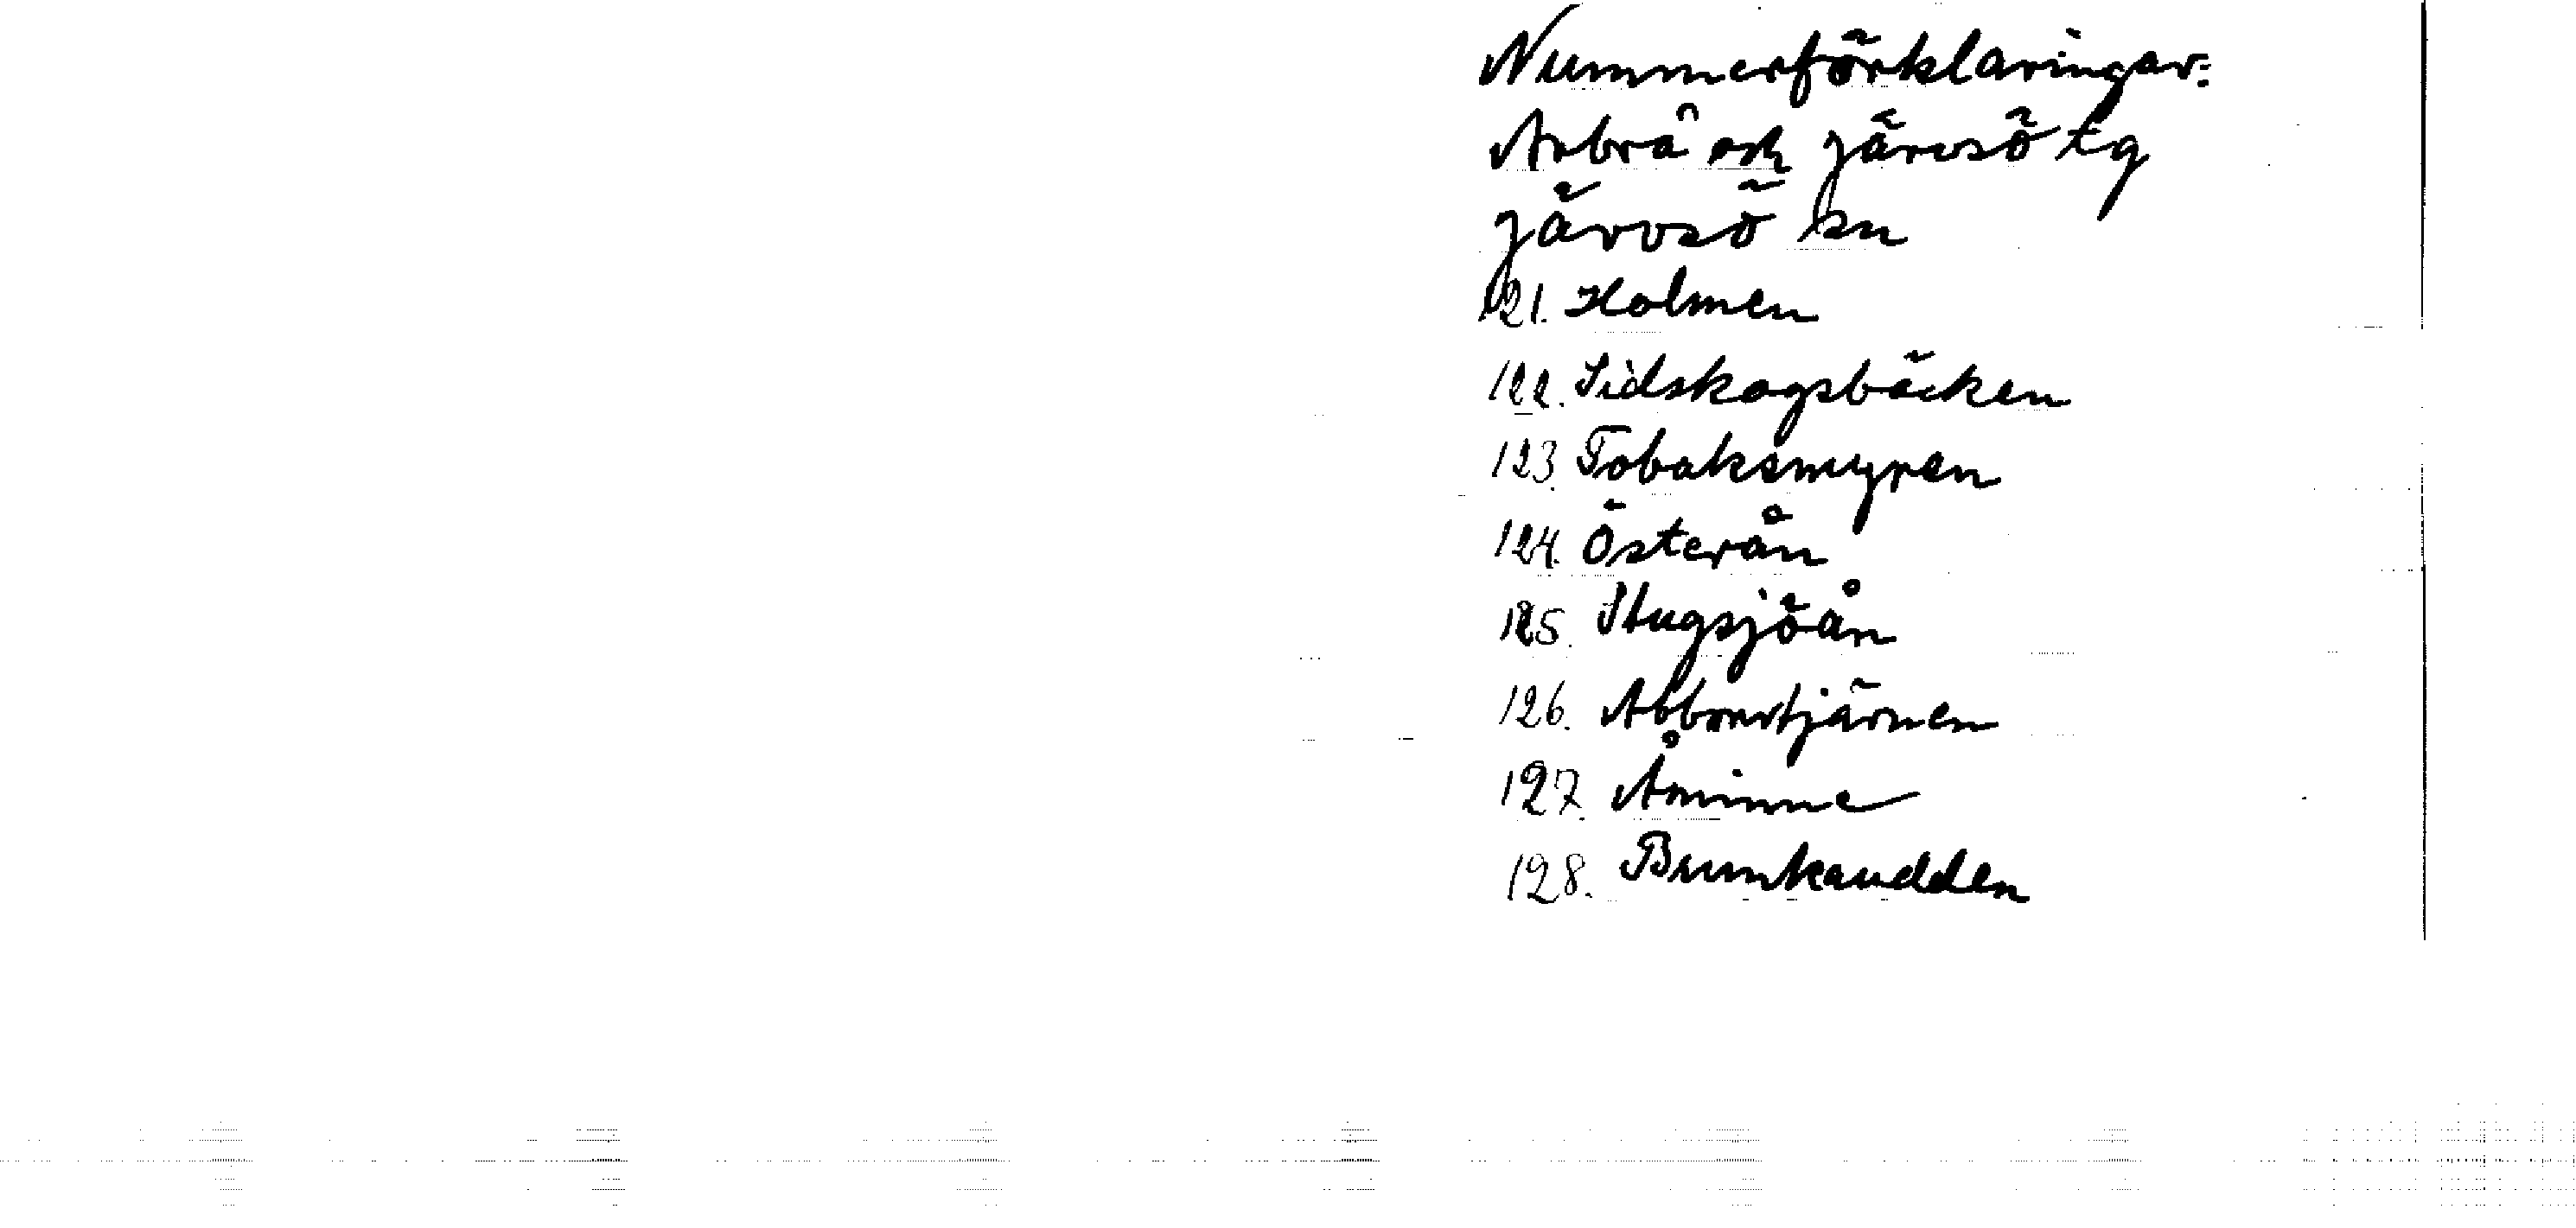 Nummerförklaringar:
Arbrå och Järvsö tg
Järvsö sn
121. Holmen
122. Sidskogsbäcken
123. Tobaksmyren
124. Österån
125. Stugsjöån
126. Abborrtjärnen
127. Åminne
128. Brunkaudden